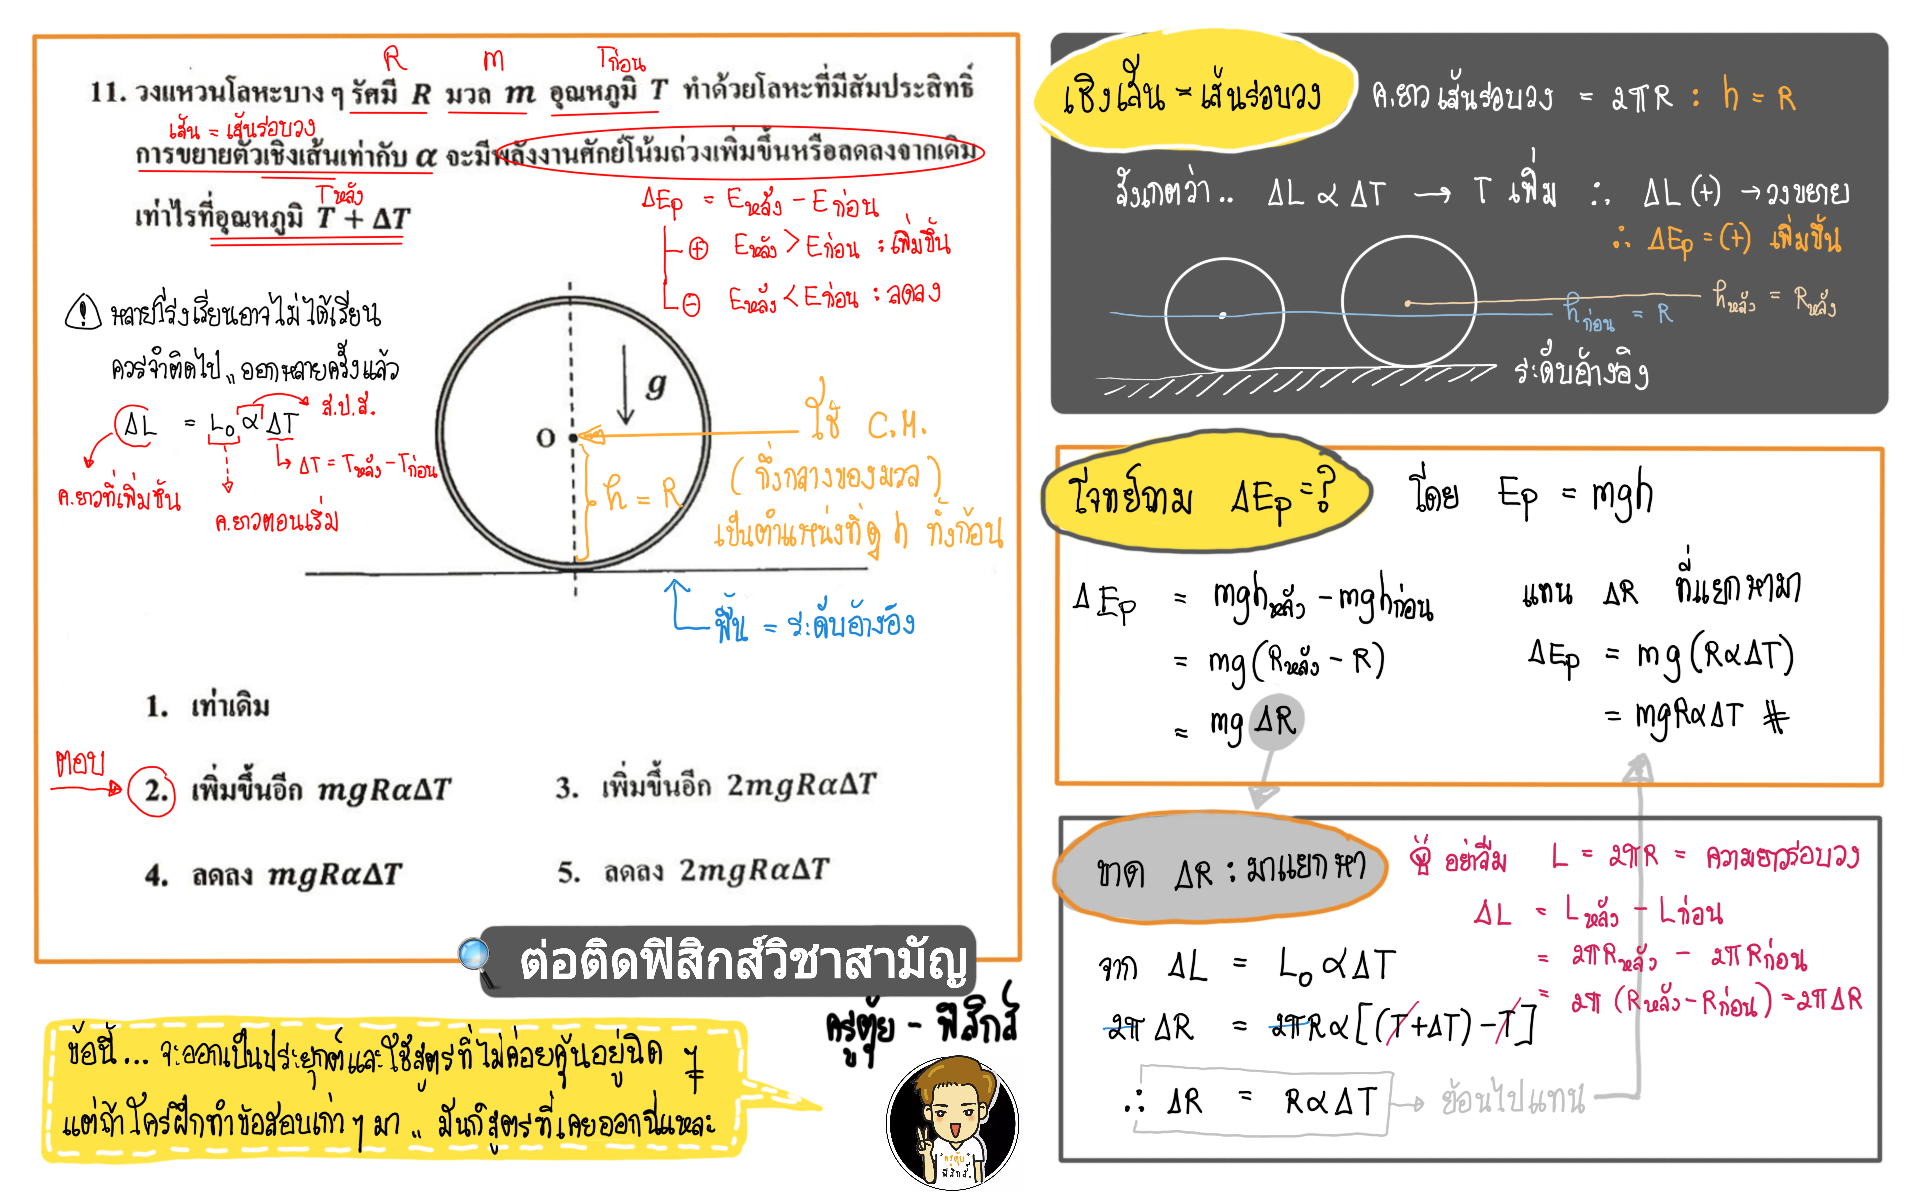 R m Tก่อน
11. วงแหวนโลหะบาง ๆ รัศมี R มวล m อุณหภูมิ T ทำด้วยโลหะที่มีสัมประสิทธิ์
เส้น = เส้นรอบวง
การขยายตัวเชิงเส้นเท่ากับ α จะมีพลังงานศักย์โน้มถ่วงเพิ่มขึ้นหรือลดลงจากเดิม
Tหลัง
เท่าไรที่อุณหภูมิ T + ΔT
ΔEp = Eหลัง - Eก่อน
⊕ Eหลัง > Eก่อน : เพิ่มขึ้น
⊖ Eหลัง < Eก่อน : ลดลง
! หลายโรงเรียนอาจไม่ได้เรียน
ควรจำติดไป ,, ออกหลายครั้งแล้ว
ΔL = L₀ α ΔT
ส.ป.ส.
ΔT = Tหลัง - Tก่อน
ค.ยาวที่เพิ่มขึ้น
ค.ยาวตอนเริ่ม
g
O
h = R
ใช้ C.M.
(กึ่งกลางของมวล)
เป็นตำแหน่งที่ดู h ทั้งก้อน
พื้น = ระดับอ้างอิง
1. เท่าเดิม
ตอบ
2. เพิ่มขึ้นอีก mgRαΔT
3. เพิ่มขึ้นอีก 2mgRαΔT
4. ลดลง mgRαΔT
5. ลดลง 2mgRαΔT
ต่อติดฟิสิกส์วิชาสามัญ
ครูตุ้ย - ฟิสิกส์
ข้อนี้ ... จะออกเป็นประยุกต์และใช้สูตรที่ไม่ค่อยคุ้นอยู่นิด ๆ
แต่ถ้าใครฝึกทำข้อสอบเก่า ๆ มา ,, มันก็สูตรที่เคยออกนี่แหละ
ครูตุ้ย
ฟิสิกส์
เชิงเส้น = เส้นรอบวง
ค.ยาวเส้นรอบวง = 2πR : h = R
สังเกตว่า.. ΔL ∝ ΔT → T เพิ่ม ∴ ΔL (+) → วงขยาย
∴ ΔEp = (+) เพิ่มขึ้น
hก่อน = R
hหลัง = Rหลัง
ระดับอ้างอิง
โจทย์ถาม ΔEp = ?
โดย Ep = mgh
ΔEp = mghหลัง - mghก่อน
= mg(Rหลัง - R)
= mg ΔR
แทน ΔR ที่แยกหามา
ΔEp = mg(RαΔT)
= mgRαΔT #
ขาด ΔR : มาแยกหา
อย่าลืม L = 2πR = ความยาวรอบวง
ΔL = Lหลัง - Lก่อน
= 2πRหลัง - 2πRก่อน
= 2π(Rหลัง - Rก่อน) = 2πΔR
จาก ΔL = L₀αΔT
2πΔR = 2πRα[(T+ΔT) - T]
∴ ΔR = RαΔT
ย้อนไปแทน